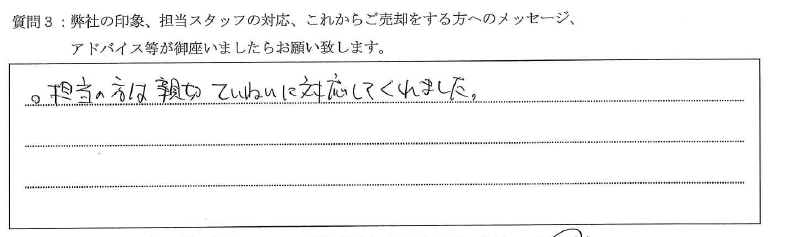 質問3：弊社の印象、担当スタッフの対応、これからご売却をする方へのメッセージ、
アドバイス等が御座いましたらお願い致します。
。担当の方は親切ていねいに対応してくれました。